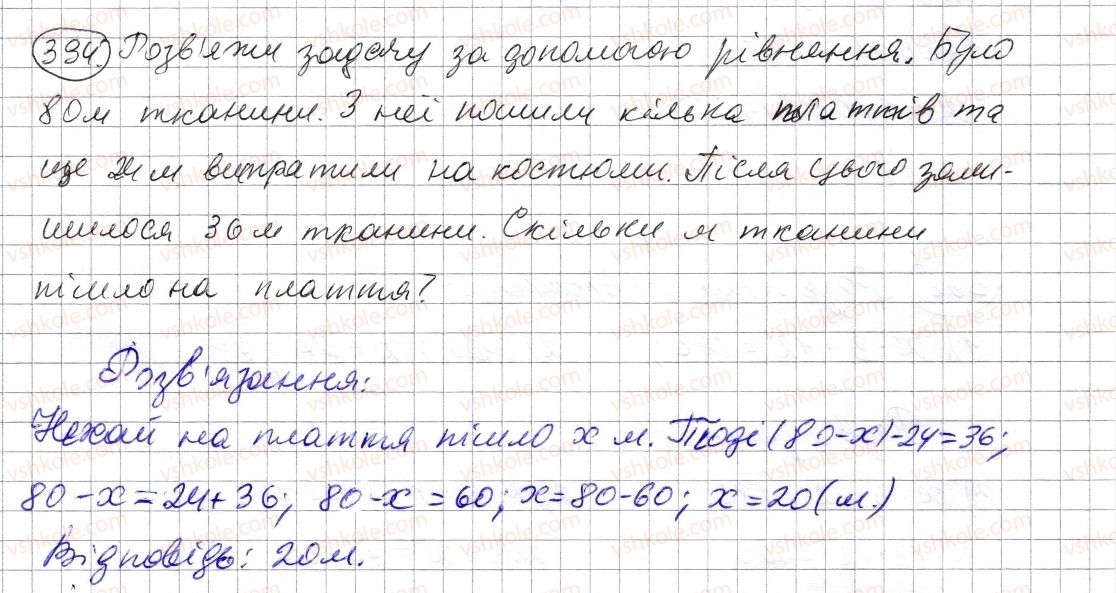 394 Розв'яжи задачу за допомогою рівняння. Було
80 м тканини. З неї пошили кілька платтів та
ще 24 м витратили на костюми. Після цього зали-
шилося 36 м тканини. Скільки м тканини
пішло на плаття?
Розв'язання:
Нехай на плаття пішло х м. Тоді (80-х)-24=36;
80-х=24+36; 80-х=60; х=80-60; х=20(м.)
Відповідь: 20м.